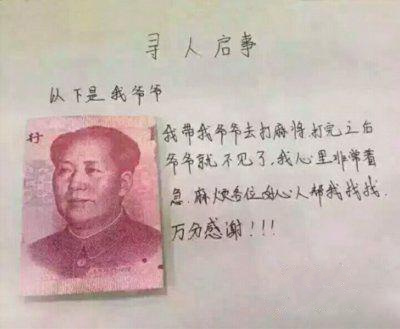 寻人启事
以下是我爷爷
我带我爷爷去打麻将打完之后
爷爷就不见了,我心里非常着
急.麻烦各位好心人帮我找找.
万分感谢!!!
行